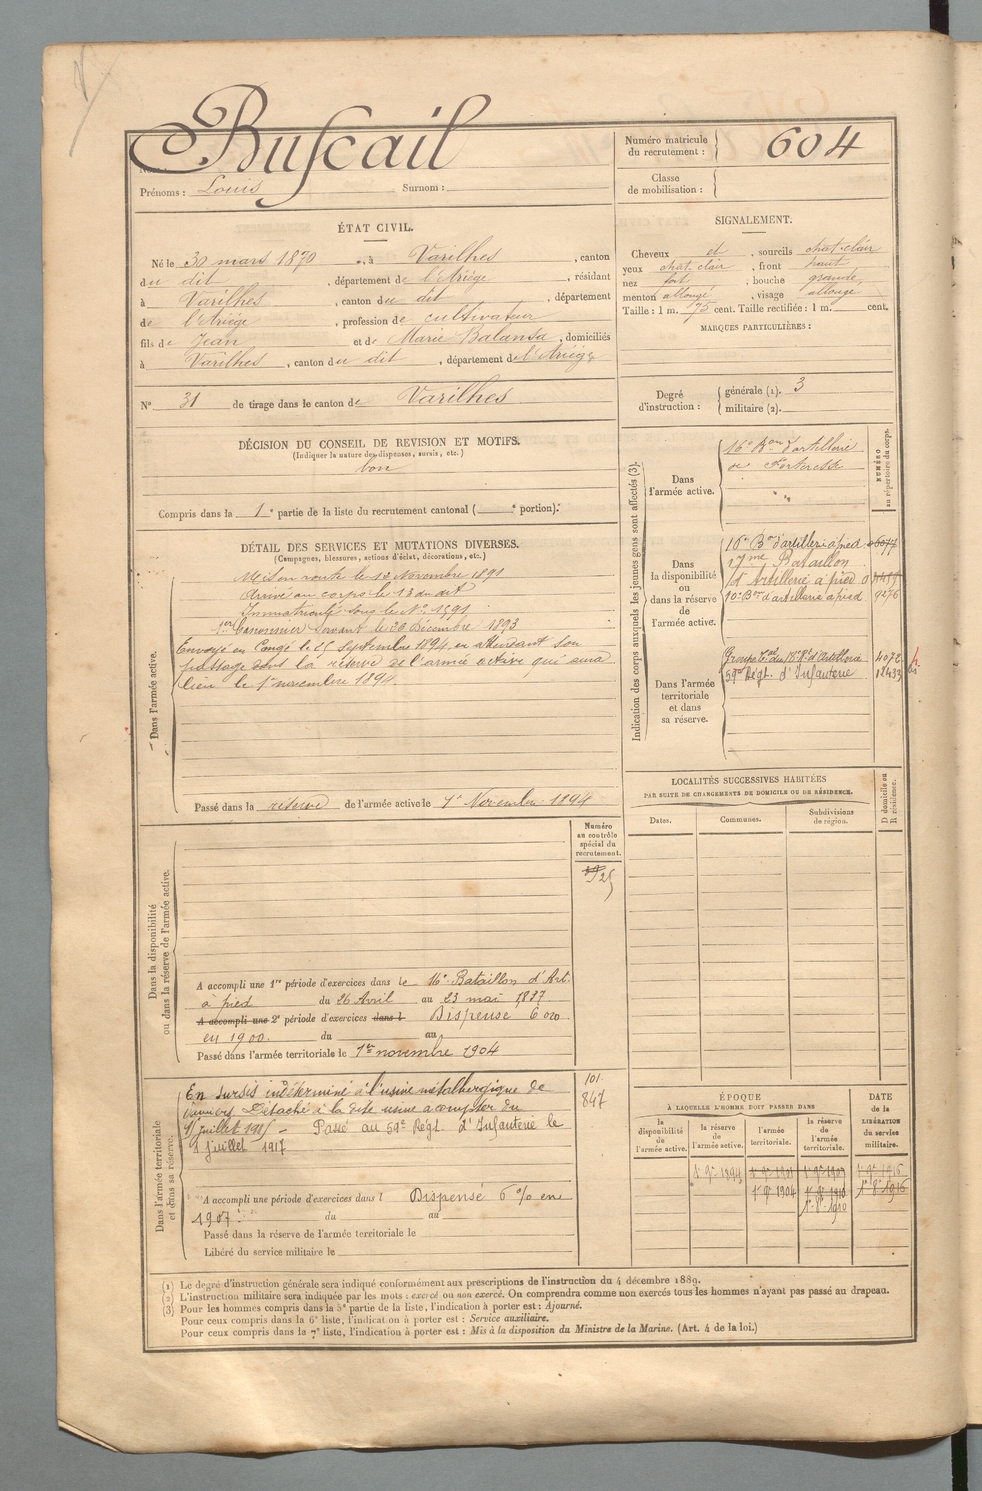 Buscail
Numéro matricule
du recrutement :
604
Prénoms : Louis Surnom :
Classe
de mobilisation :
ÉTAT CIVIL.
Né le 30 mars 1870, à Varilhes, canton
du dit, département de l'Ariège, résidant
à Varilhes, canton du dit, département
de l'Ariège, profession de cultivateur
fils de Jean et de Marie Balansa, domiciliés
à Varilhes, canton du dit, département de l'Ariège
N° 31 de tirage dans le canton de Varilhes
SIGNALEMENT.
Cheveux et, sourcils chat-clair
yeux chat. clair, front haut
nez fort, bouche grande
menton allongé, visage allongé
Taille : 1 m. 75 cent. Taille rectifiée : 1 m. cent.
MARQUES PARTICULIÈRES :
Degré
d'instruction :
générale (1). 3
militaire (2).
DÉCISION DU CONSEIL DE REVISION ET MOTIFS.
(Indiquer la nature des dispenses, sursis, etc.)
bon
Compris dans la 1e partie de la liste du recrutement cantonal ( e portion).
DÉTAIL DES SERVICES ET MUTATIONS DIVERSES.
(Campagnes, blessures, actions d'éclat, décorations, etc.)
Dans l'armée active.
Mis en route le 12 Novembre 1891
Arrivé au corps le 13 du dit
Immatriculé sous le N° 1591
1er Canonnier servant le 26 Décembre 1893
Envoyé en Congé le 25 Septembre 1894 en attendant son
passage dans la réserve de l'armée active qui aura
lieu le 1er novembre 1894
Passé dans la réserve de l'armée active le 1er Novembre 1894
Indication des corps auxquels les jeunes gens sont affectés (3).
NUMÉRO
au répertoire du corps.
Dans
l'armée active.
16e Bon d'artillerie
de Forteresse
Dans
la disponibilité
ou
dans la réserve
de
l'armée active.
16e Bon d'artillerie à pied
17me Bataillon
d'Artillerie à pied
10e Bon d'artillerie à pied 9276
Dans l'armée
territoriale
et dans
sa réserve.
Groupe Tal du 18e Rt d'Artillerie 4072
59e Régt. d'Infanterie 18433
LOCALITÉS SUCCESSIVES HABITÉES
PAR SUITE DE CHANGEMENTS DE DOMICILE OU DE RÉSIDENCE.
D domicile ou
R résidence.
Dates.
Communes.
Subdivisions
de région.
Numéro
au contrôle
spécial du
recrutement.
Dans la disponibilité
ou dans la réserve de l'armée active.
A accompli une 1re période d'exercices dans le 16e Bataillon d'Art.
à pied du 26 Avril au 23 mai 1897
A accompli une 2e période d'exercices dans l Dispensé 6 %
en 1900. du au
Passé dans l'armée territoriale le 1er novembre 1904
Dans l'armée territoriale
et dans sa réserve.
En sursis indéterminé à l'usine métallurgique de
Pamiers. Détaché à la dite usine à compter du
juillet 1915 – Passé au 59e Régt. d'Infanterie le
8 juillet 1917
101.
847
A accompli une période d'exercices dans l Dispensé 6 % en
1907. du au
Passé dans la réserve de l'armée territoriale le
Libéré du service militaire le
ÉPOQUE
À LAQUELLE L'HOMME DOIT PASSER DANS
DATE
de la
LIBÉRATION
du service
militaire.
la
disponibilité
de
l'armée active.
la réserve
de
l'armée active.
l'armée
territoriale.
la réserve
de
l'armée
territoriale.
1er 9bre 1894
1er 9bre 1904
(1) Le degré d'instruction générale sera indiqué conformément aux prescriptions de l'instruction du 4 décembre 1889.
(2) L'instruction militaire sera indiquée par les mots : exercé ou non exercé. On comprendra comme non exercés tous les hommes n'ayant pas passé au drapeau.
(3) Pour les hommes compris dans la 5e partie de la liste, l'indication à porter est : Ajourné.
Pour ceux compris dans la 6e liste, l'indication à porter est : Service auxiliaire.
Pour ceux compris dans la 7e liste, l'indication à porter est : Mis à la disposition du Ministre de la Marine. (Art. 4 de la loi.)